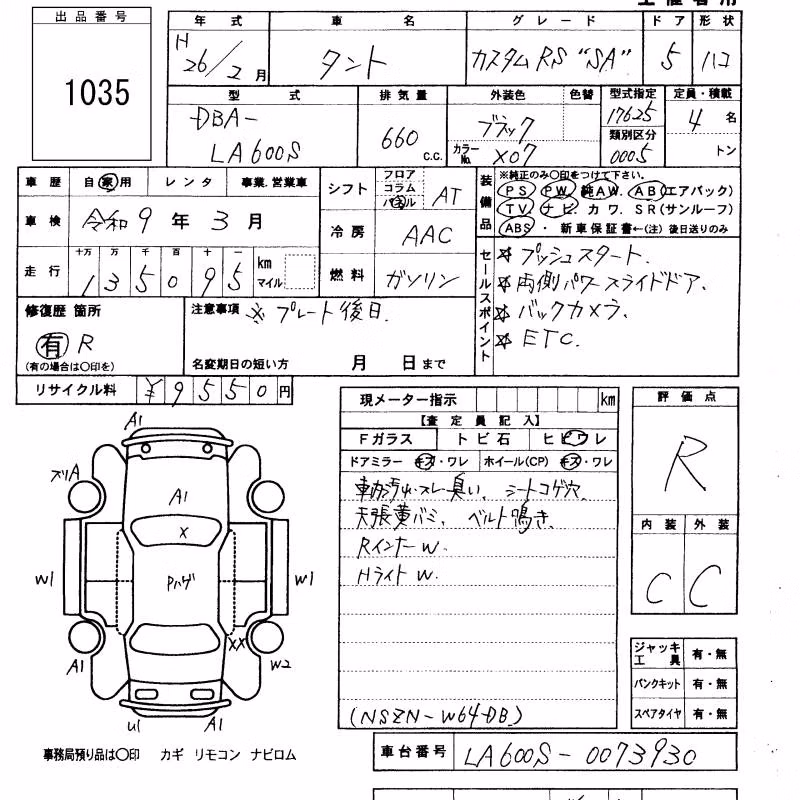 出品番号
1035
年式
H
26/2月
車名
タント
グレード
カスタムRS "SA"
ドア
5
形状
ハコ
型式
DBA-
LA600S
排気量
660 c.c.
外装色
ブラック
色替
カラーNo. X07
型式指定
17625
類別区分
0005
定員・積載
4名
トン
車歴
自家用
レンタ
事業.営業車
車検
令和9年3月
走行
十万 万 千 百 十 一
135095
km
マイル
シフト
フロア
コラム
パネル
AT
冷房
AAC
燃料
ガソリン
装備品
※純正のみ〇印をつけて下さい。
PS PW 純AW. AB(エアバック)
TV ナビ. カワ. SR(サンルーフ)
ABS ・ 新車保証書←(注)後日送りのみ
セールスポイント
☆ プッシュスタート.
☆ 両側パワースライドドア.
☆ バックカメラ.
☆ ETC.
修復歴 箇所
有 R
(有の場合は〇印を)
注意事項
※プレート後日.
名変期日の短い方 月 日まで
リサイクル料
¥9550円
現メーター指示
km
【査定員記入】
Fガラス
トビ石
ヒビワレ
ドアミラー キズ・ワレ
ホイール(CP) キズ・ワレ
臭い、シートコゲ穴.
天張黄バミ、ベルト鳴き.
Rインナー W.
Hライト W.
(NSZN-W64DB)
評価点
R
内装
外装
C
C
ジャッキ工具
有・無
パンクキット
有・無
スペアタイヤ
有・無
A1
ズリA
A1
X
W1
Pハゲ
W1
XX
A1
W2
U1
A1
事務局預り品は〇印 カギ リモコン ナビロム
車台番号
LA600S-0073930